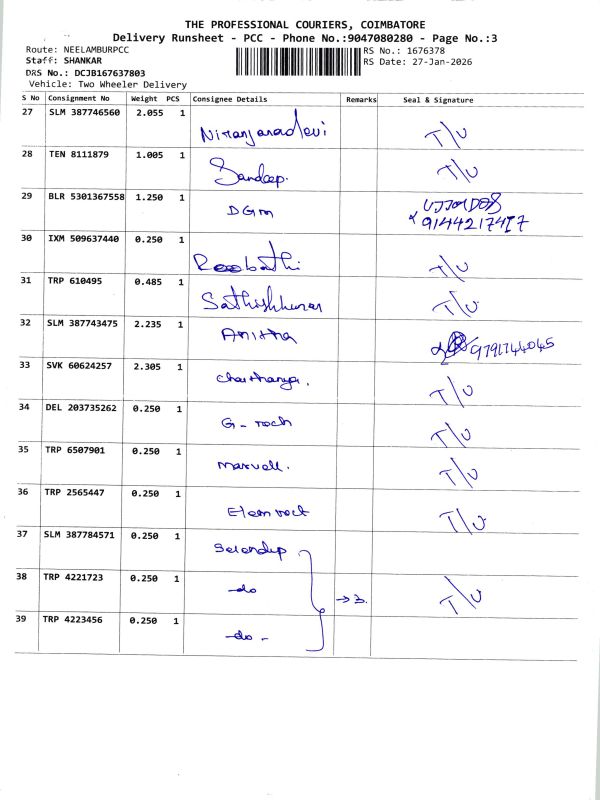 THE PROFESSIONAL COURIERS, COIMBATORE
Delivery Runsheet - PCC - Phone No.:9047080280 - Page No.:3
Route: NEELAMBURPCC RS No.: 1676378
Staff: SHANKAR RS Date: 27-Jan-2026
DRS No.: DCJB167637803
Vehicle: Two Wheeler Delivery
S No Consignment No Weight PCS Consignee Details Remarks Seal & Signature
27 SLM 387746560 2.055 1 Niranjanadevi T/U
28 TEN 8111879 1.005 1 Sandeep. T/U
29 BLR 5301367558 1.250 1 DGM
30 IXM 509637440 0.250 1 Roobathi T/U
31 TRP 610495 0.485 1 Sathishkumar T/U
32 SLM 387743475 2.235 1 Anitha 9791744045
33 SVK 60624257 2.305 1 Chaithanya. T/U
34 DEL 203735262 0.250 1 G-Tech T/U
35 TRP 6507901 0.250 1 Marvell. T/U
36 TRP 2565447 0.250 1 T/U
37 SLM 387784571 0.250 1
38 TRP 4221723 0.250 1 -do →3. T/U
39 TRP 4223456 0.250 1 -do-